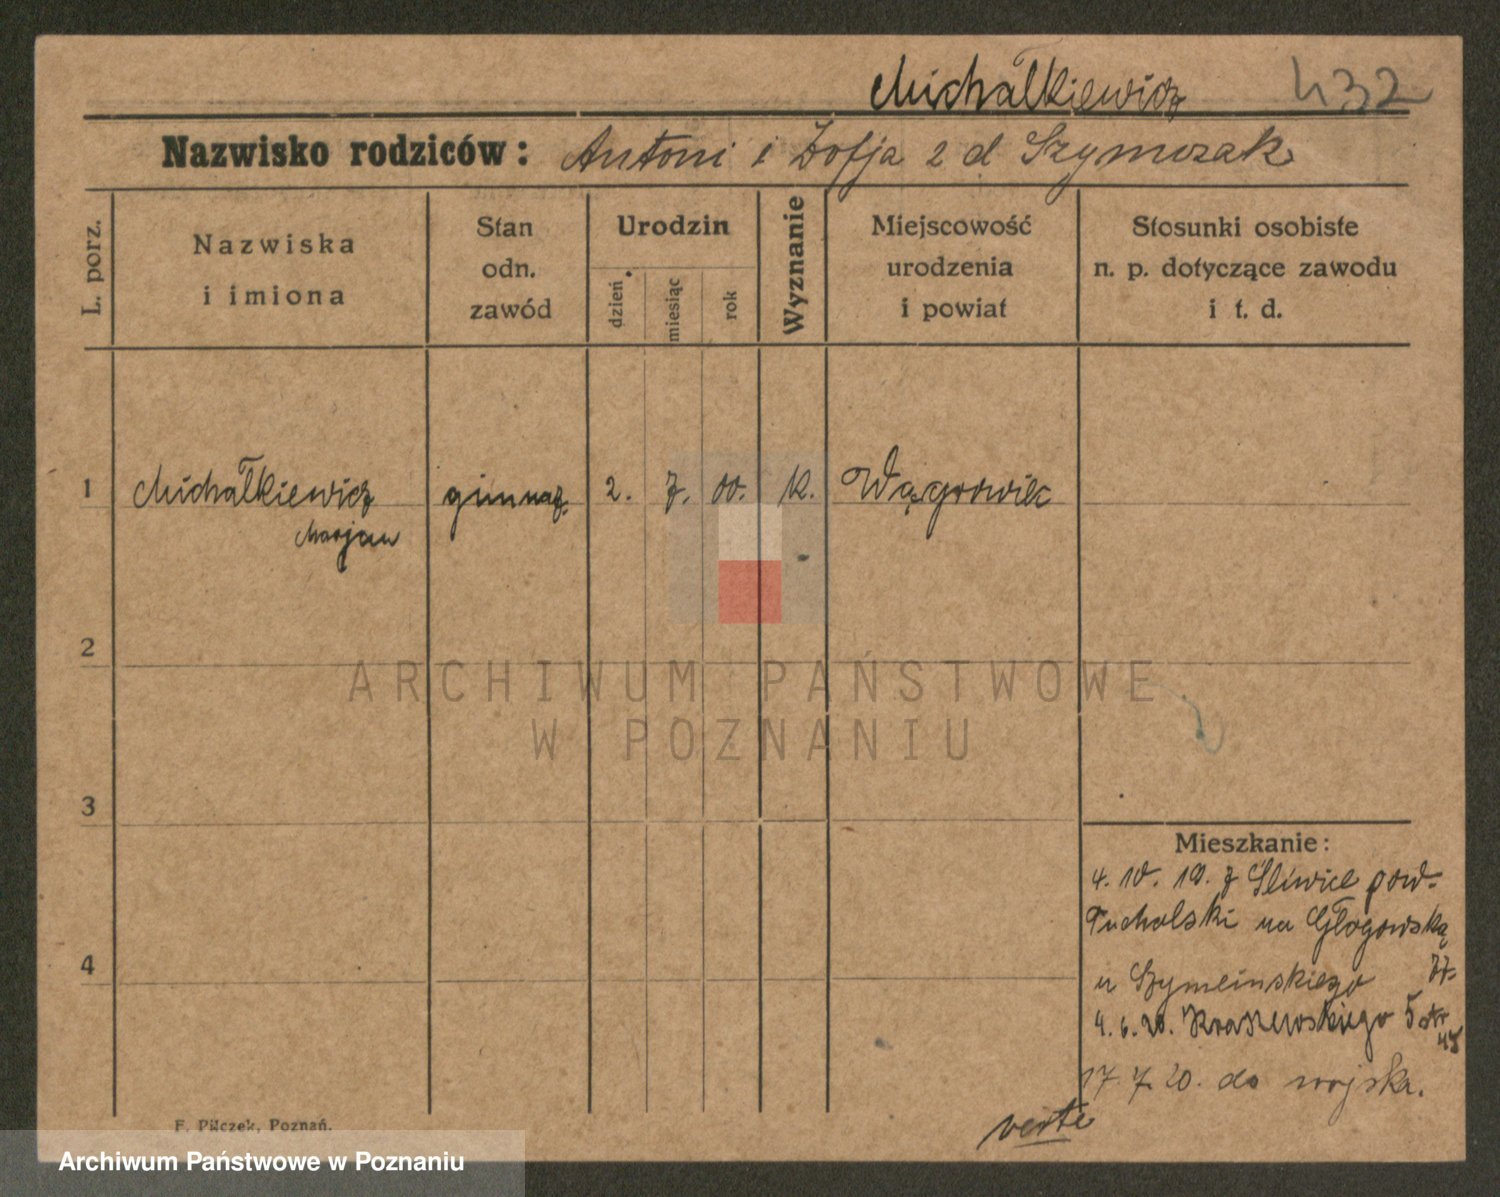 Michałkiewicz 432
Nazwisko rodziców: Antoni i Zofja 2 d Szymczak
L. porz.
Nazwiska
i imiona
Stan
odn.
zawód
Urodzin
dzień
miesiąc
rok
Wyznanie
Miejscowość
urodzenia
i powiat
Stosunki osobiste
n. p. dotyczące zawodu
i t. d.
1 Michałkiewicz gimnaz. 2. 7. 00. k. Wągrowiec
Marjan
2
ARCHIWUM PAŃSTWOWE
W POZNANIU
3
Mieszkanie:
4. 10. 19. z Śliwice pow.
Tucholski na Głogowską
77.
u
4. 6. 20. Kraszewskiego 5
4
17. 7. 20. do wojska.
verte
F. Pilczek, Poznań.
Archiwum Państwowe w Poznaniu